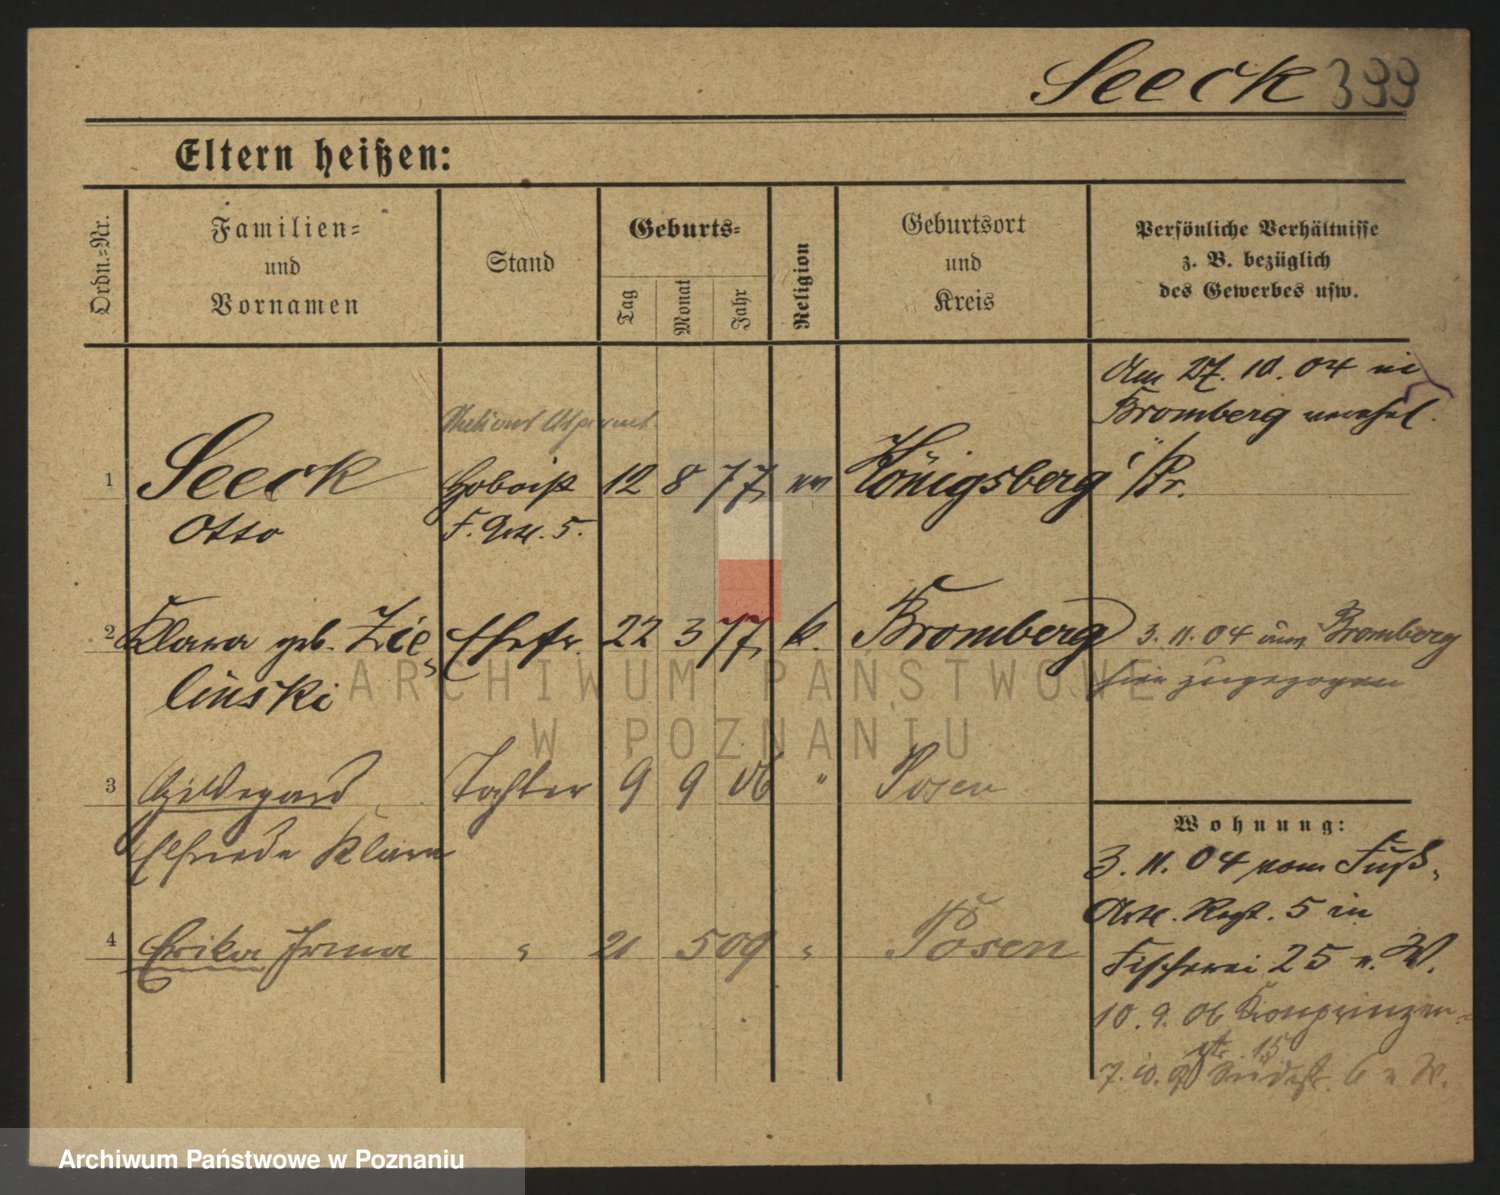 Seeck 399
Eltern heißen:
Ordn.-Nr.
Familien- und Vornamen
Stand
Geburts-
Tag
Monat
Jahr
Religion
Geburtsort und Kreis
Persönliche Verhältnisse z. B. bezüglich des Gewerbes usw.
Am 27. 10. 04 in
Bromberg verehel.
1 Seeck Hoboist 12 8 77 ev Königsberg i/Pr.
Otto F. Art. 5.
2 Klara geb. Zie- Ehefr. 22 3 77 k. Bromberg 3. 11. 04 aus Bromberg
linski hier zugezogen
3 Hildegard Tochter 9 9 06 " Posen
Elfriede Klara
4 Erika Irma " 21 5 09 " Posen
Wohnung:
3. 11. 04 vom Fuß-
Art. Regt. 5 in
Fischerei 25 v. W.
10. 9. 06 Kronprinzen-
str. 15
7. 10. 6 v W.
ARCHIWUM PAŃSTWOWE
W POZNANIU
Archiwum Państwowe w Poznaniu